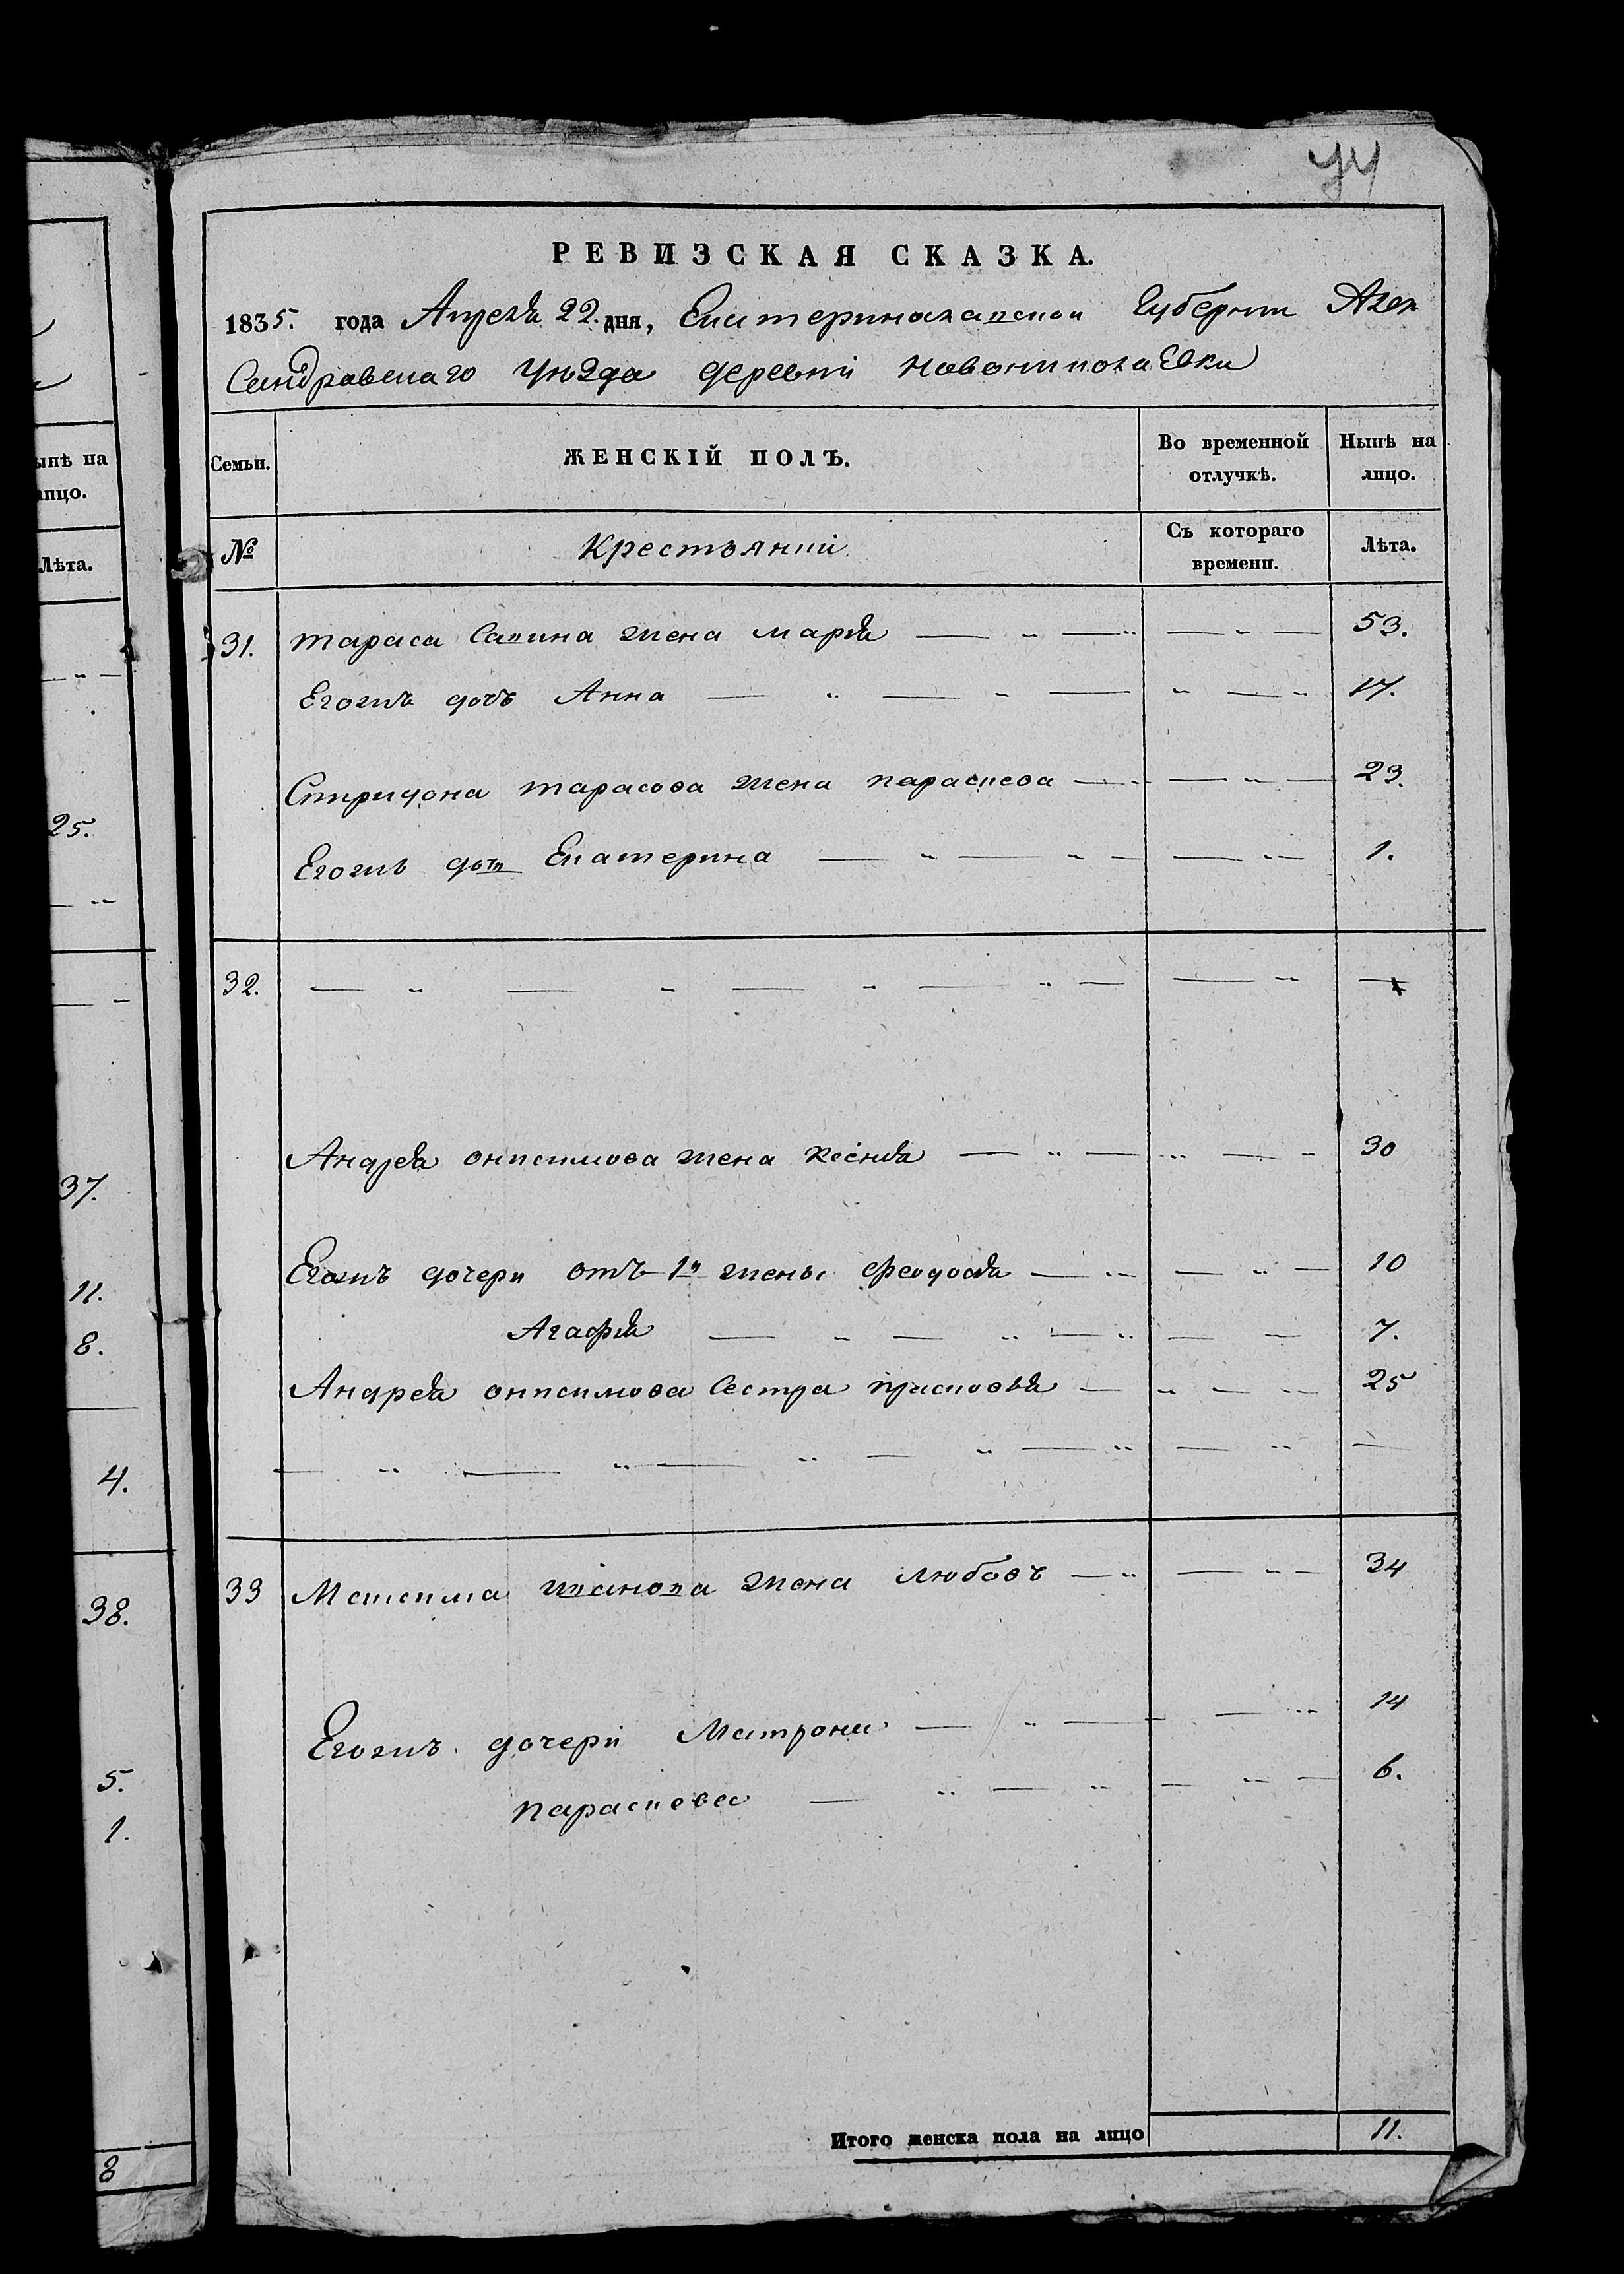 44
РЕВИЗСКАЯ СКАЗКА.
1835. года Апреля 22. дня, Екатеринославской Губернии Алек
Сандровскаго Уѣзда деревни Новониколаевки
Семьи. ЖЕНСКІЙ ПОЛЪ. Во временной отлучкѣ. Нынѣ на лицо.
№ Крестьянии Съ котораго времени. Лѣта.
31. тараса Савина жена марія — " — " — " — 53.
Егожъ дочь Анна — " — " — " — " 17.
Спиридона тарасова жена параскева — " — " — 23.
Егожъ дочь Екатерина — " — " — — " — 1.
32. — " — " — " — " — — " —
Андрея онисимова жена ксенія — " — " — " 30
Егожъ дочери отъ 1й жены феодосія — " — " — 10
Агафія — " — " — " — — 7.
Андрея онисимова Сестра присковья — " — " 25
— " — " — " — " — " — " —
33 Максима иванова жена любовъ — " — " — 34
Егожъ дочери Матрона — " — — " 14
параскева — " — " — " — 6.
Итого женска пола на лицо 11.
ынѣ на
лицо.
Лѣта.
25.
37.
11.
8.
4.
38.
5.
1.
8